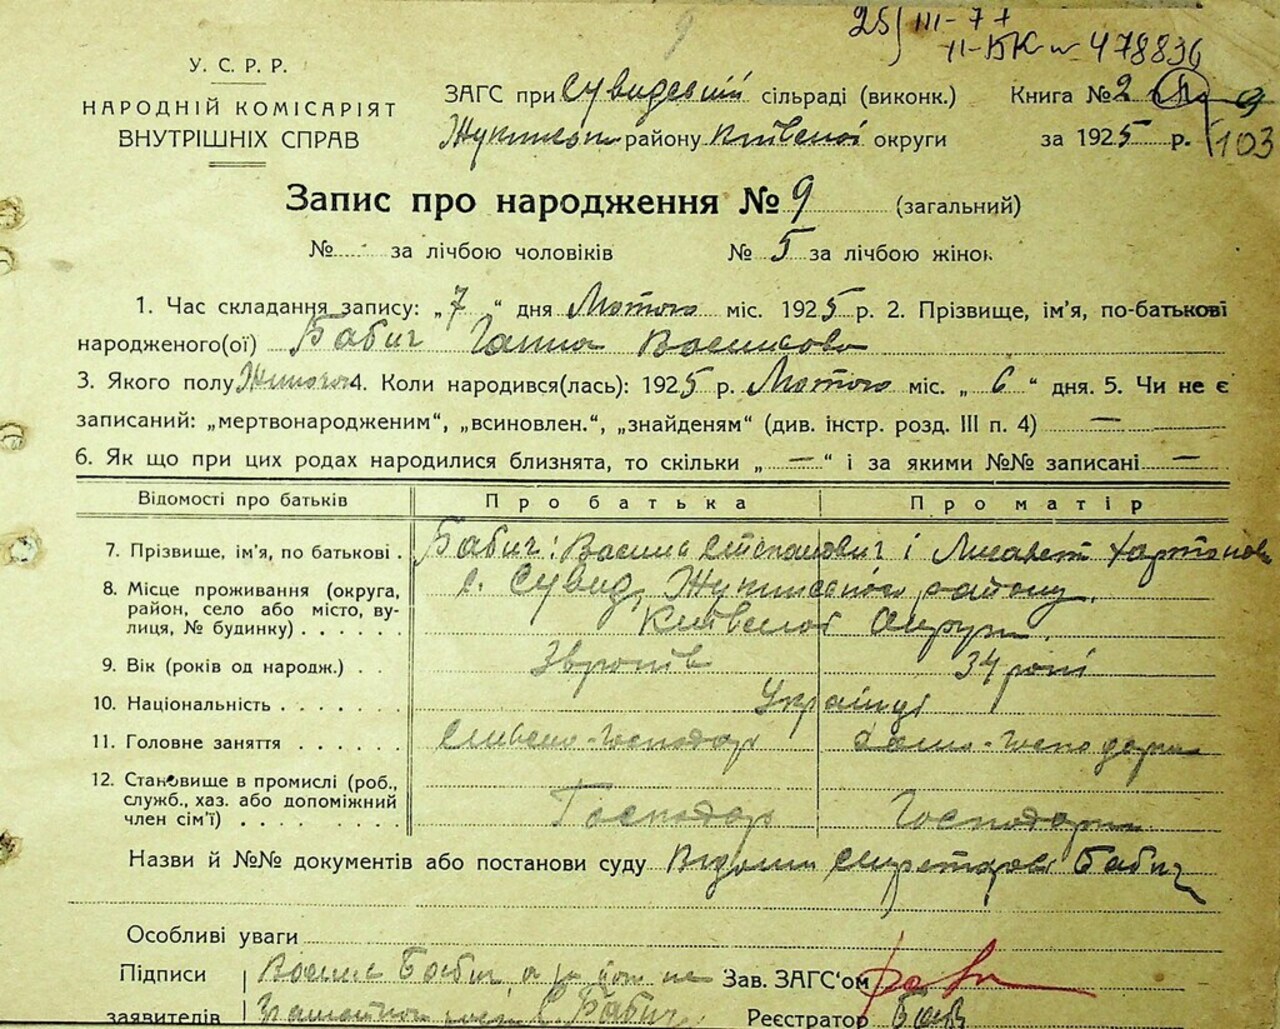 9
25/III-7
II-БК № 478836
У. С. Р. Р.
НАРОДНІЙ КОМІСАРІЯТ
ВНУТРІШНІХ СПРАВ
ЗАГС при Сувидський сільраді (виконк.) Книга № 2
району Київської округи за 1925 р. 103
Запис про народження № 9 (загальний)
№ за лічбою чоловіків № 5 за лічбою жінок
1. Час складання запису: „7“ дня Лютого міс. 1925 р. 2. Прізвище, ім'я, по-батькові
народженого(ої) Бабич Ганна Василівна
3. Якого полу Жіночого 4. Коли народився(лась): 1925 р. Лютого міс. „6“ дня. 5. Чи не є
записаний: „мертвонародженим“, „всиновлен.“, „знайденям“ (див. інстр. розд. III п. 4) —
6. Як що при цих родах народилися близнята, то скільки „—“ і за якими №№ записані —
Відомості про батьків Про батька Про матір
7. Прізвище, ім'я, по батькові . Бабич: Василь Степанович і Лисавета
8. Місце проживання (округа, с. Сувид, району,
район, село або місто, ву- Київської Округи.
лиця, № будинку) . . . . . .
9. Вік (років од народж.) . років 34 роки
10. Національність . . . . . . . Українці
11. Головне заняття . . . . . . Сільсько-Господар Домо-Господарка
12. Становище в промислі (роб.,
служб., хаз. або допоміжний
член сім'ї) . . . . . . . . . Господар Господарка
Назви й №№ документів або постанови суду Відомий Секретарові Бабич
Особливі уваги
Підписи Василь Бабич, а за Зав. ЗАГС'ом
заявителів Бабич Реєстратор